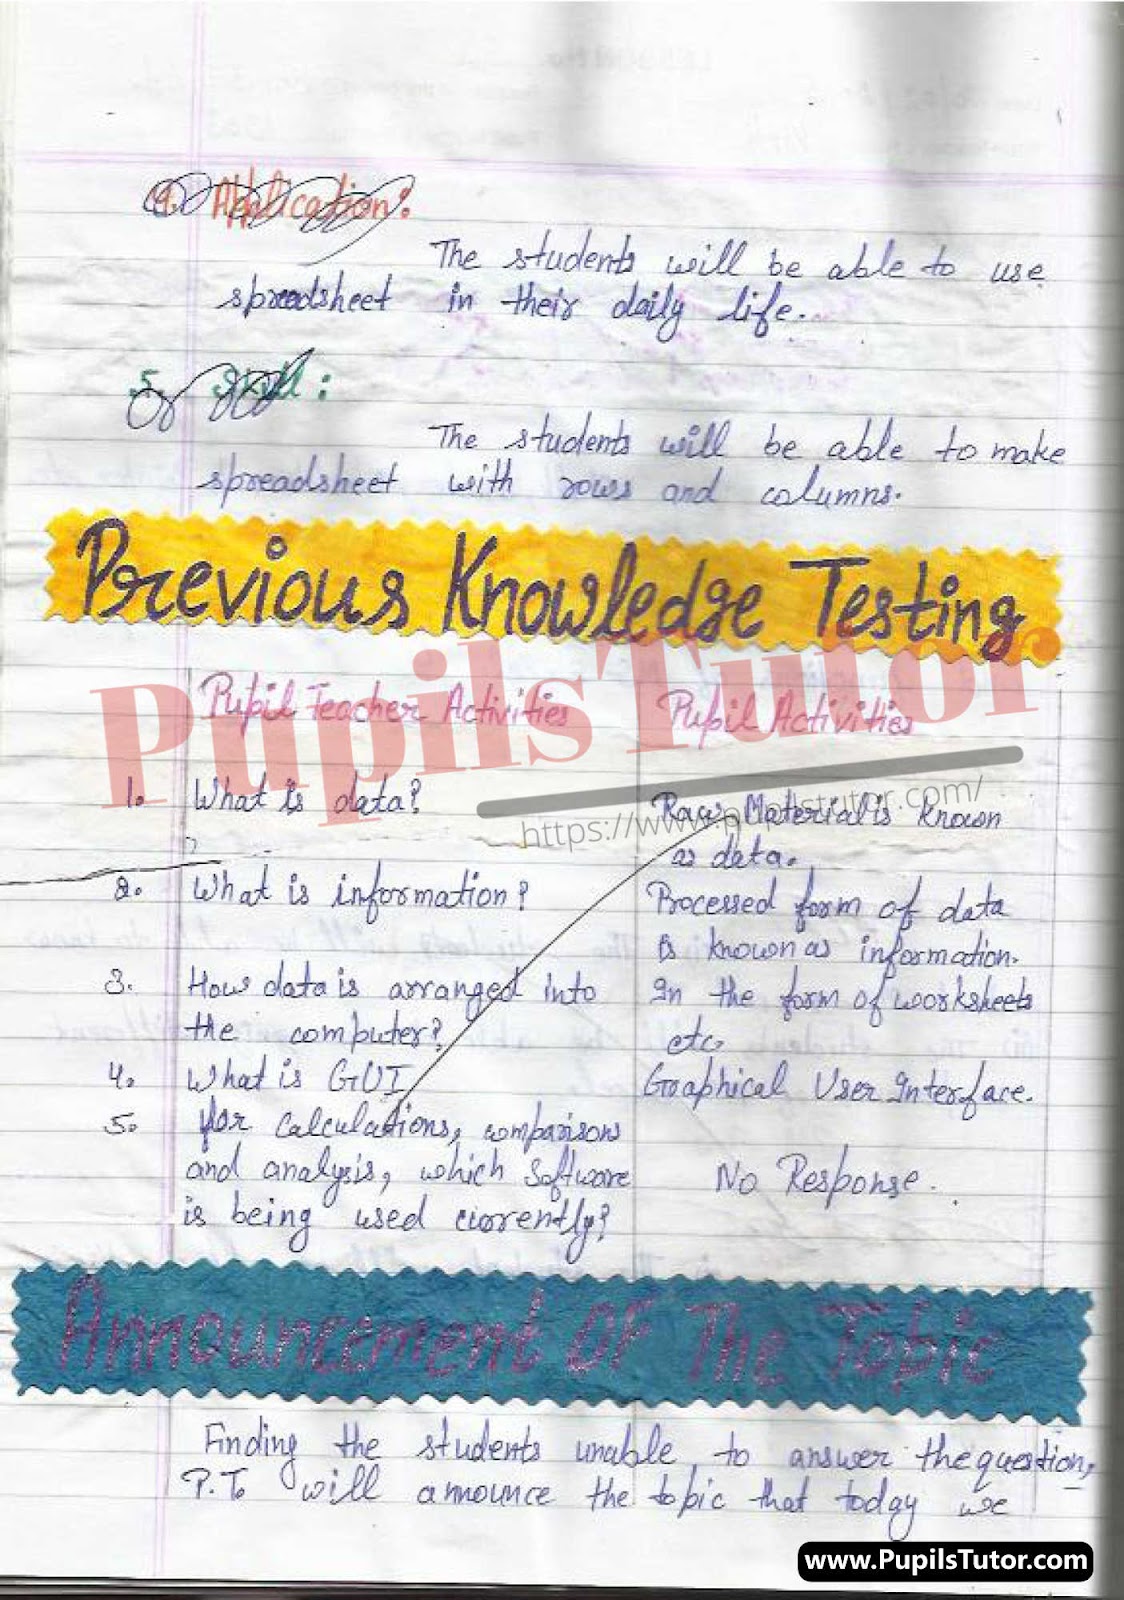 4. Application:
The students will be able to use
spreadsheet in their daily life.
5. Skill:
The students will be able to make
spreadsheet with rows and columns.
Previous Knowledge Testing
Pupil Teacher Activities Pupil Activities
PupilsTutor
https://www.pupilstutor.com/
1. What is data? Raw Material is known
as data.
2. What is information? Processed form of data
is known as information.
3. How data is arranged into In the form of worksheets
the computer? etc.
4. What is GUI Graphical User Interface.
5. For Calculations, comparisons
and analysis, which software No Response.
is being used currently?
Announcement Of The Topic
Finding the students unable to answer the question,
P.T. will announce the topic that today we
www.PupilsTutor.com